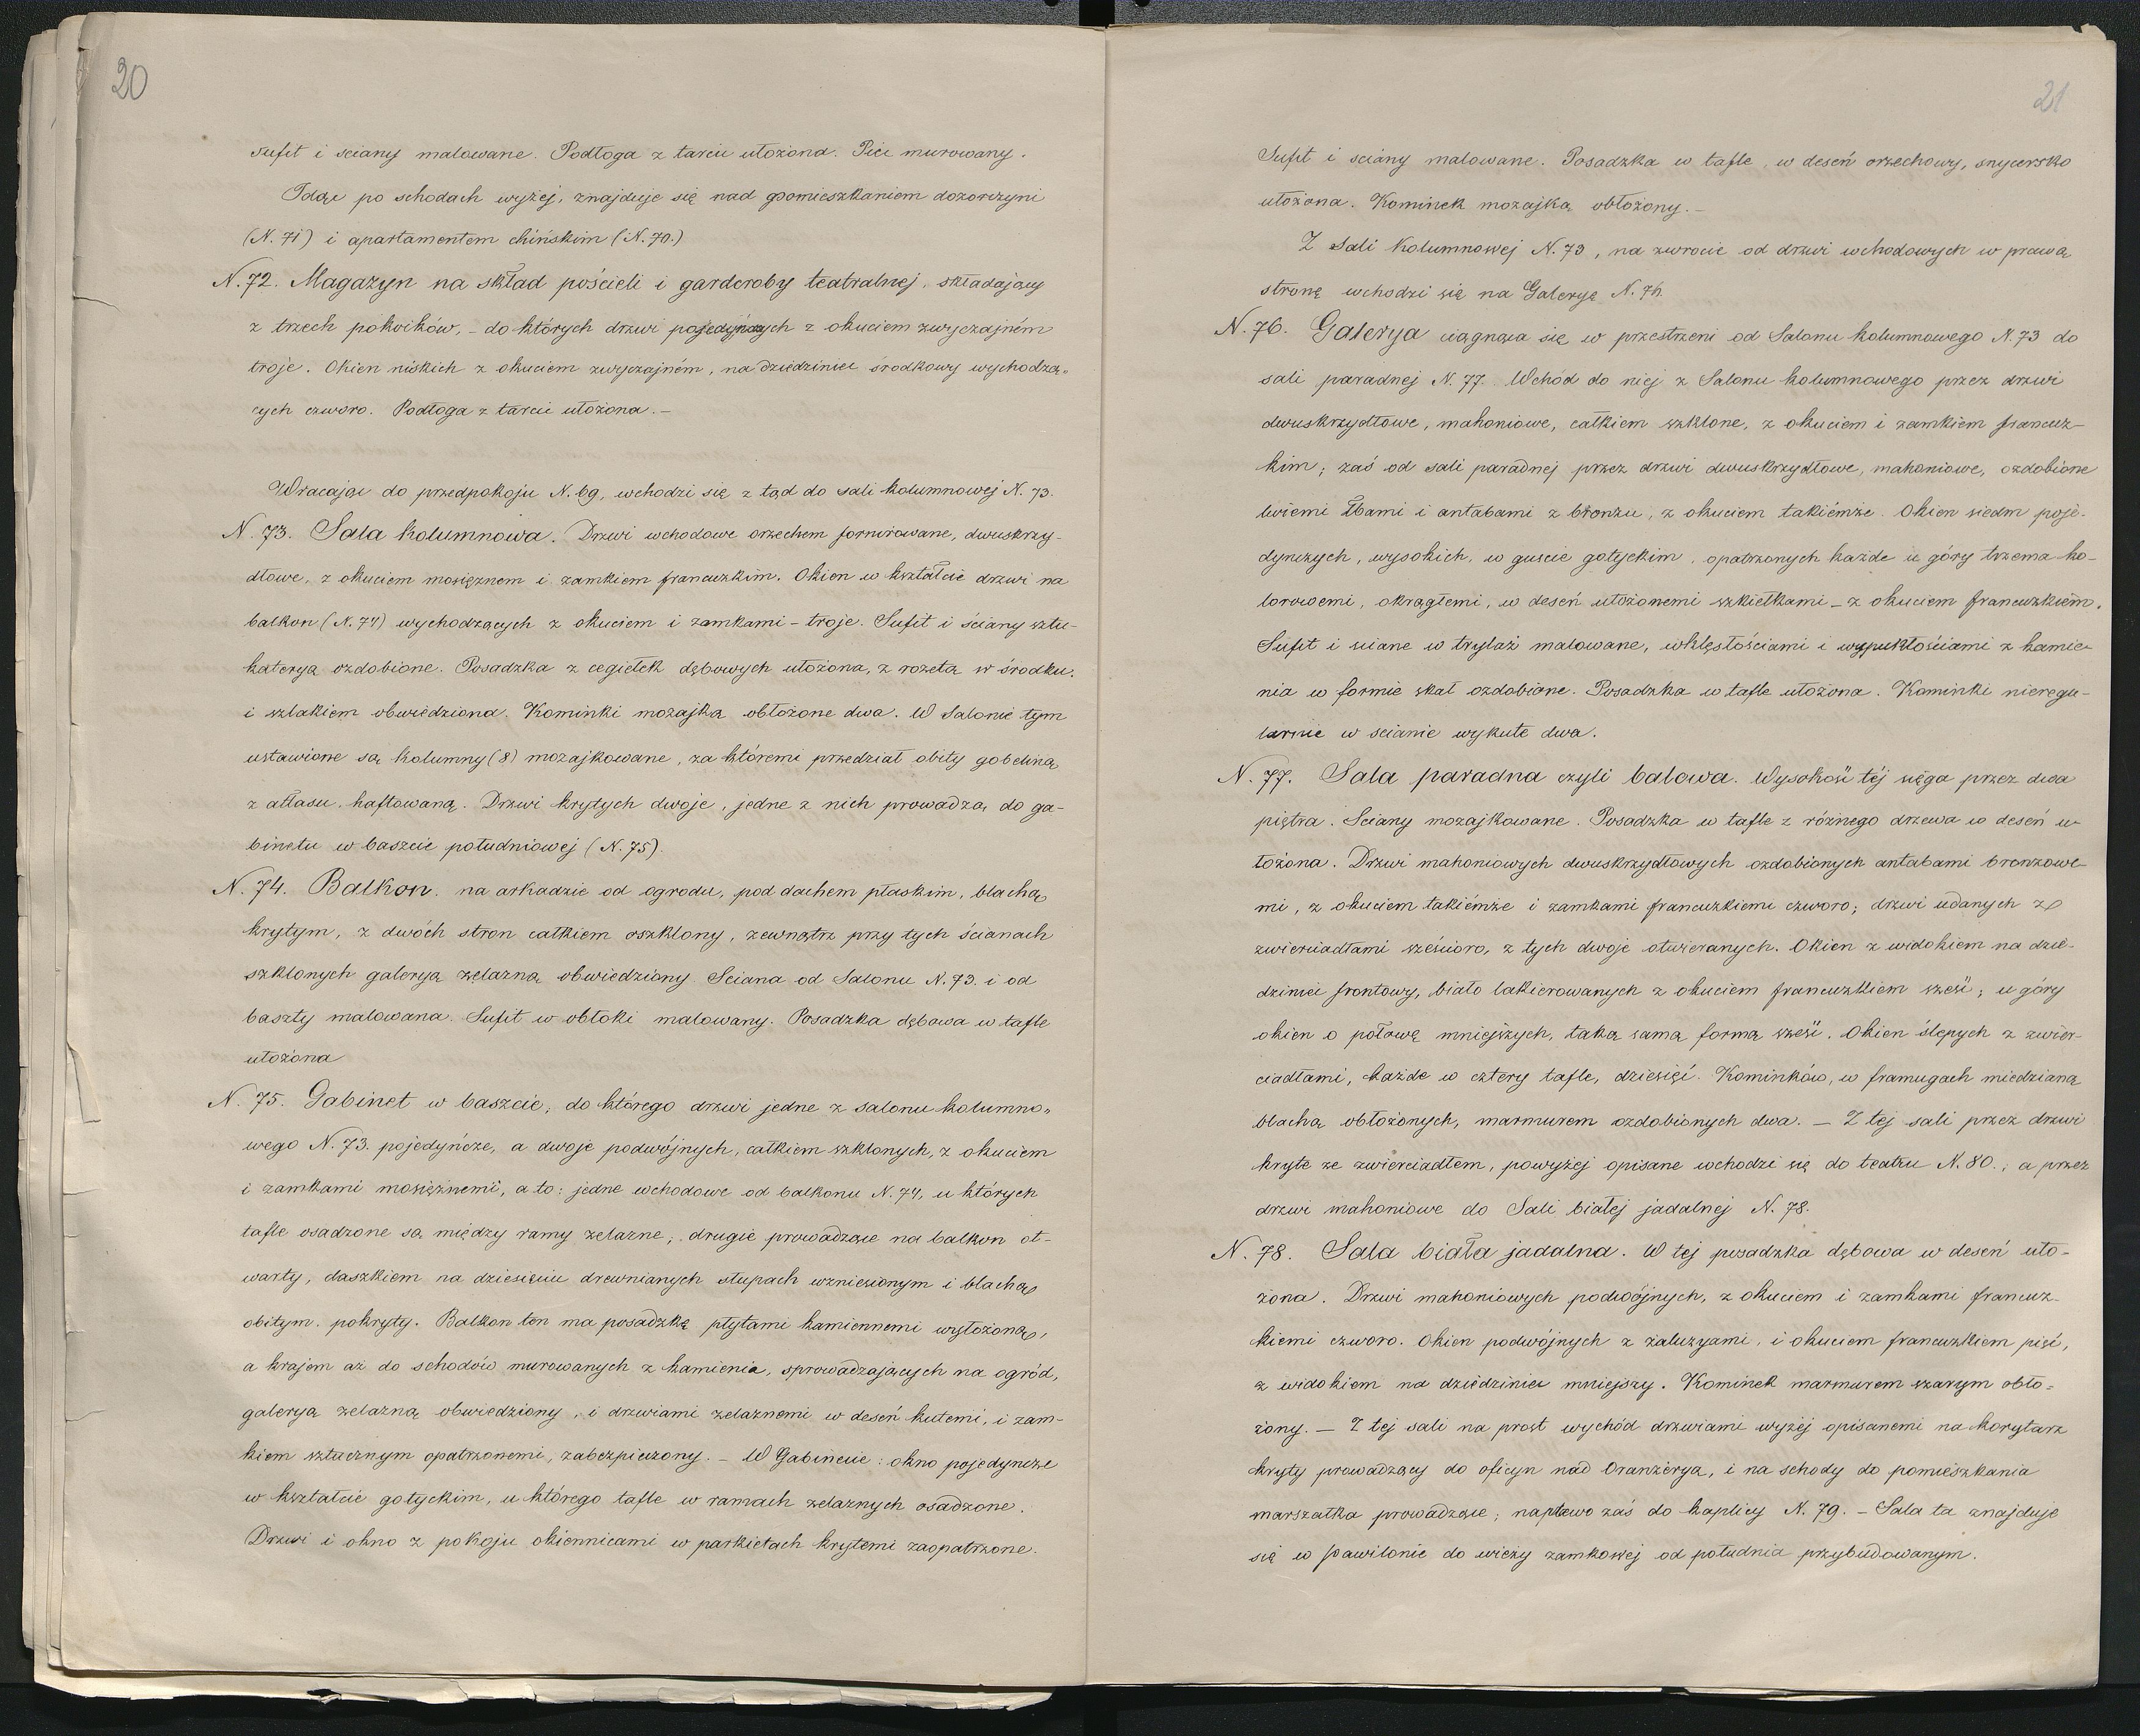 20
sufit i sciany malowane. Podłoga z tarcic ułożona. Piec murowany.
Idąc po schodach wyżej, znajduje się nad pomieszkaniem dozorczyni
(N. 71) i apartamentem chińskim (N. 70.)
N. 72. Magazyn na skład pościeli i garderoby teatralnej, składający
z trzech pokoików, – do których drzwi pojedyńczych z okuciem zwyczajném
troje. Okien niskich z okuciem zwyczajném, na dziedziniec środkowy wychodzą-
cych czworo. Podłoga z tarcic ułożona. –
Wracając do przedpokoju N. 69, wchodzi się z tąd do sali kolumnowej N. 73.
N. 73. Sala kolumnowa. Drzwi wchodowe orzechem fornirowane, dwuskrzy-
dłowe, z okuciem mosiężnem i zamkiem francuzkim. Okien w kształcie drzwi na
balkon (N. 74) wychodzących z okuciem i zamkami – troje. Sufit i ściany sztu-
katerya ozdobione. Posadzka z cegiełek dębowych ułożona, z rozetą w środku,
i szlakiem obwiedziona. Kominki mozajką obłożone dwa. W Salonie tym
ustawione są kolumny (8) mozajkowane, za któremi przedział obity gobeliną
z atłasu haftowaną. Drzwi krytych dwoje, jedne z nich prowadzą do ga-
binetu w baszcie południowej (N. 75).
N. 74. Balkon. na arkadzie od ogrodu, pod dachem płaskim, blachą
krytym, z dwóch stron całkiem oszklony, zewnątrz przy tych ścianach
szklonych galeryą żelazną obwiedziony Sciana od Salonu N. 73. i od
baszty malowana. Sufit w obłoki malowany. Posadzka dębowa w tafle
ułożona
N. 75. Gabinet w baszcie, do którego drzwi jedne z salonu kolumno-
wego N. 73. pojedyńcze, a dwoje podwójnych, całkiem szklonych, z okuciem
i zamkami mosiężnemi, a to: jedne wchodowe od balkonu N. 74, u których
tafle osadzone są między ramy żelazne; drugie prowadzące na balkon ot-
warty, daszkiem na dziesięciu drewnianych słupach wzniesionym i blachą
obitym, pokryty. Balkon ten ma posadzkę płytami kamiennemi wyłożoną,
a krajem aż do schodów murowanych z kamienia, sprowadzających na ogród,
galeryą żelazną obwiedziony, i drzwiami żelaznemi w deseń kutemi, i zam-
kiem sztucznym opatrzonemi, zabezpieczony. – W Gabinecie: okno pojedyncze
w kształcie gotyckim, u którego tafle w ramach żelaznych osadzone.
Drzwi i okno z pokoju okiennicami w parkietach krytemi zaopatrzone.
21
Sufit i sciany malowane. Posadzka w tafle, w deseń orzechowy, snycersko
ułożona. Kominek mozajką obłożony. –
Z Sali kolumnowej N. 73, na zwrocie od drzwi wchodowych w prawą
stronę wchodzi się na Galeryę N. 76.
N. 76. Galerya ciągnąca się w przestrzeni od Salonu kolumnowego N. 73 do
sali paradnej N. 77. Wchód do niej z Salonu kolumnowego przez drzwi
dwuskrzydłowe, mahoniowe, całkiem szklone, z okuciem i zamkiem francuz-
kim; zaś od sali paradnej przez drzwi dwuskrzydłowe, mahoniowe, ozdobione
lwiemi łbami i antabami z bronzu, z okuciem takiémże. Okien siedm poje-
dynczych, wysokich, w guscie gotyckim, opatrzonych każde u góry trzema ko-
lorowemi, okrągłemi, w deseń ułożonemi szkiełkami – z okuciem francuzkiem.
Sufit i sciane w trylaż malowane, wklęsłościami i wypukłościami z kamie-
nia w formie skał ozdobione. Posadzka w tafle ułożona. Kominki nieregu-
larnie w scianie wykute dwa.
N. 77. Sala paradna czyli balowa. Wysokość téj sięga przez dwa
piętra. Sciany mozajkowane. Posadzka w tafle z różnego drzewa w deseń u-
łożona. Drzwi mahoniowych dwuskrzydłowych ozdobionych antabami bronzowe-
mi, z okuciem takiémże i zamkami francuzkiemi czworo; drzwi udanych ze
zwierciadłami sześcioro, z tych dwoje otwieranych. Okien z widokiem na dzie-
dziniec frontowy, biało lakierowanych z okuciem francuzkiem sześć; u góry
okien o połowę mniejszych, taką samą formą sześć. Okien ślepych z zwier-
ciadłami, każde w cztery tafle, dziesięć. Kominków, w framugach miedzianą
blachą obłożonych, marmurem ozdobionych dwa. – Z tej sali przez drzwi
kryte ze zwierciadłem, powyżej opisane wchodzi się do teatru N. 80., a przez
drzwi mahoniowe do Sali białej jadalnej N. 78.
N. 78. Sala biała jadalna. W tej posadzka dębowa w deseń uło-
żona. Drzwi mahoniowych podwójnych, z okuciem i zamkami francuz-
kiemi czworo. Okien podwójnych z żaluzyami, i okuciem francuzkiem pięć,
z widokiem na dziedziniec mniejszy. Kominek marmurem szarym obło-
żony. – Z tej sali na prost wychód drzwiami wyżej opisanemi na korytarz
kryty prowadzący do oficyn nad Oranżeryą, i na schody do pomieszkania
marszałka prowadzące; na lewo zaś do kaplicy N. 79. – Sala ta znajduje
się w pawilonie do wieży zamkowej od południa przybudowanym.